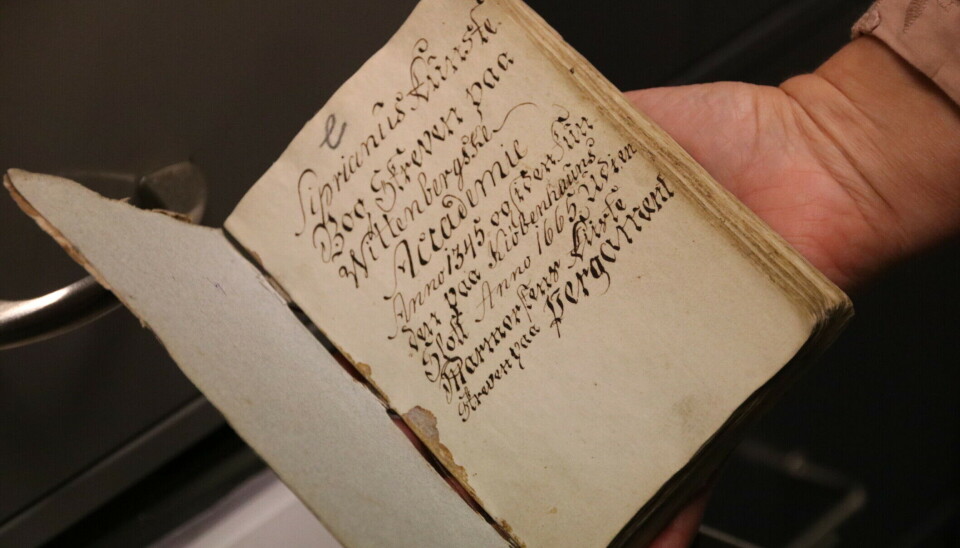 e
Siprianus Kunste
Bog, Skreven paa
Wittenbergske
Accademie
Anno 1345 og siden fun
den paa Kiøbenhauns
Slott Anno 1665 udi en
Marmorsteens Kiiste
Skreven paa Pergament